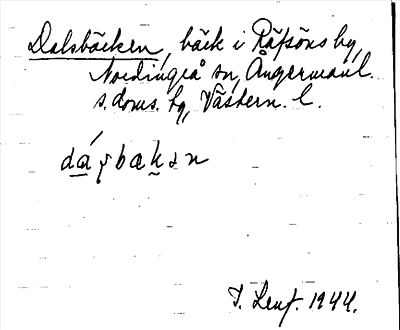 Dalsbäcken, bäck i Räfsöns by,
Nordingrå sn, Ångermanl.
s. doms. hg, Västern. l.
dáɽbakən
I. Lenf. 1944.